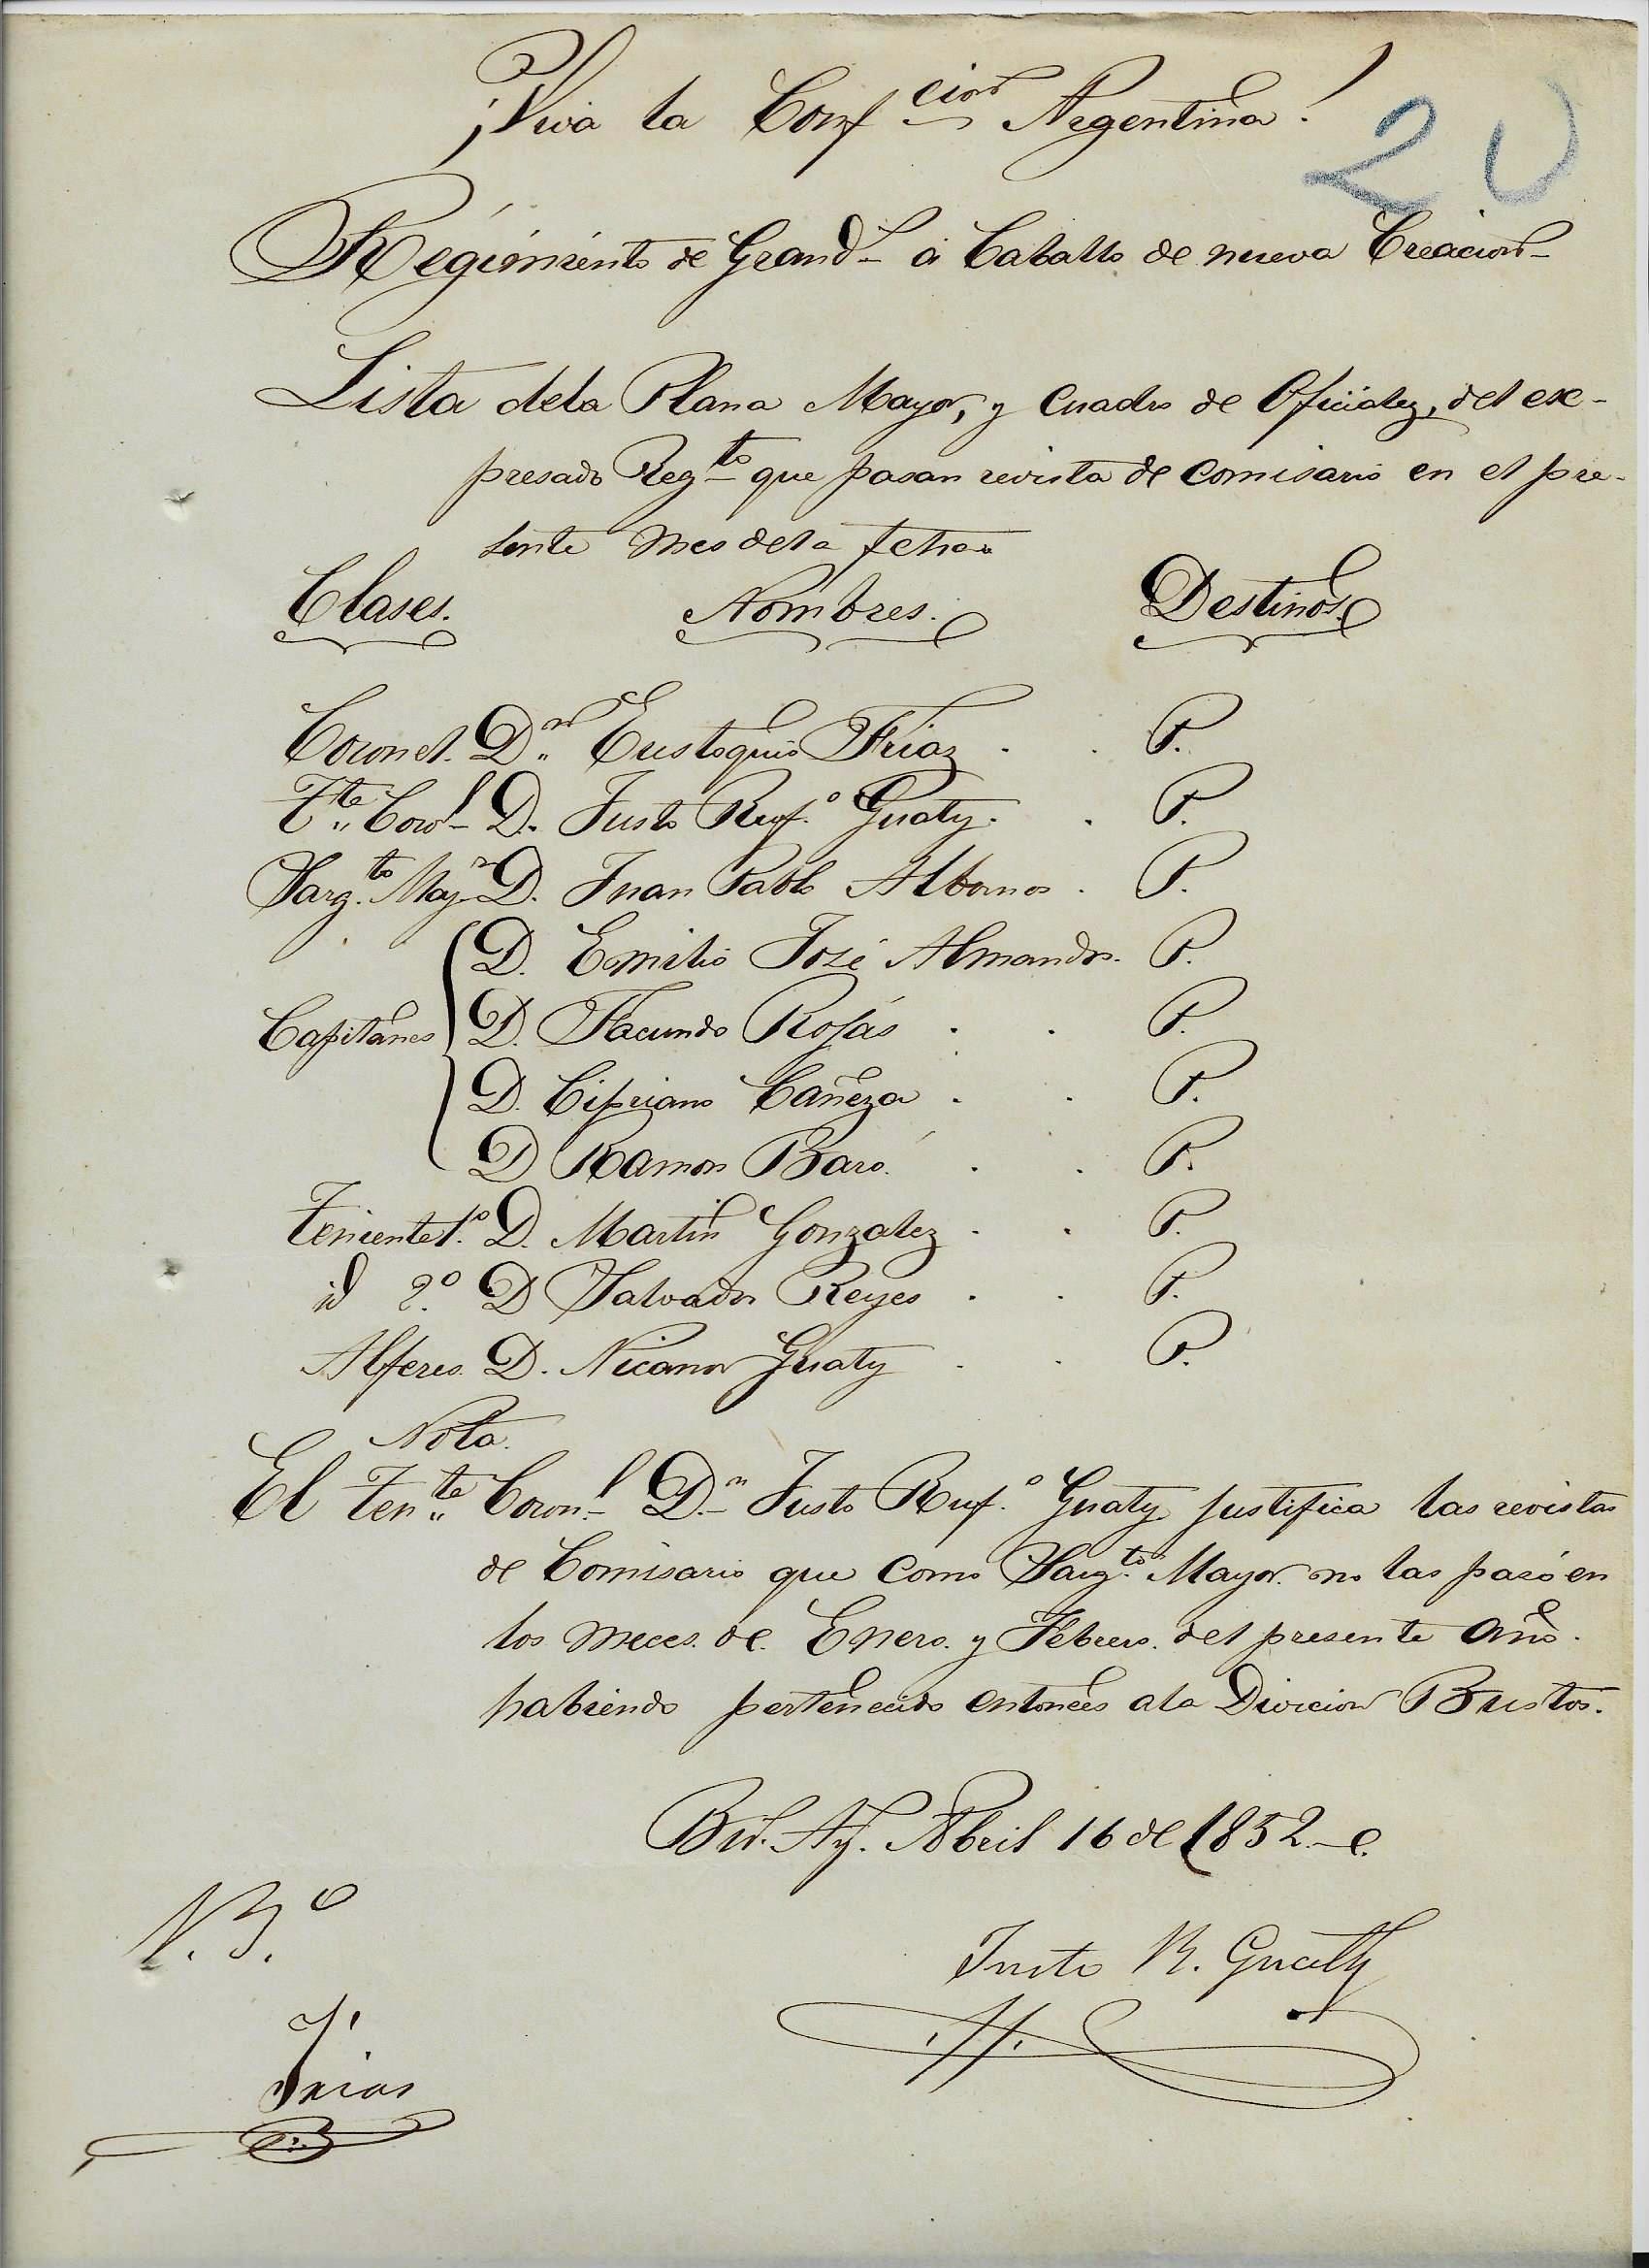 ¡Viva la Conf.cion Argentina!
20
Regimiento de Grand.s á Caballo de nueva Creacion
Lista dela Plana Mayor, y Cuadro de Oficialez, del ex-
presado Reg.to que pasan revista de Comisario en el pre-
sente mes dela fecha
Clases. Nombres. Destinos.
Coronel. D.n Eustoquio Friaz . . P.
T.te Cor.l D. Justo Ruf.o Guaty . . P.
Sarg.to May.r D. Juan Pablo Albornos . P.
D. Emilio José Almandos. P.
Capitanes D. Facundo Rojas . . P.
D. Cipriano Cañeza . . P.
D Ramon Baró . . P.
Teniente 1.o D. Martin Gonzalez . . P.
id 2.o D Salvador Reyes . . P.
Alferes D. Nicanor Guaty . . P.
Nota.
El Ten.te Coron.l D.n Justo Ruf.o Guaty justifica las revistas
de Comisario que como Sarg.to Mayor no las pasó en
los meces de Enero y Febrero del presente año.
habiendo pertenecido entonces ala Divicion Bustos.
Bs. Ay. Abril 16 de 1852.
V. B.o
Justo R. Guaty
Frias